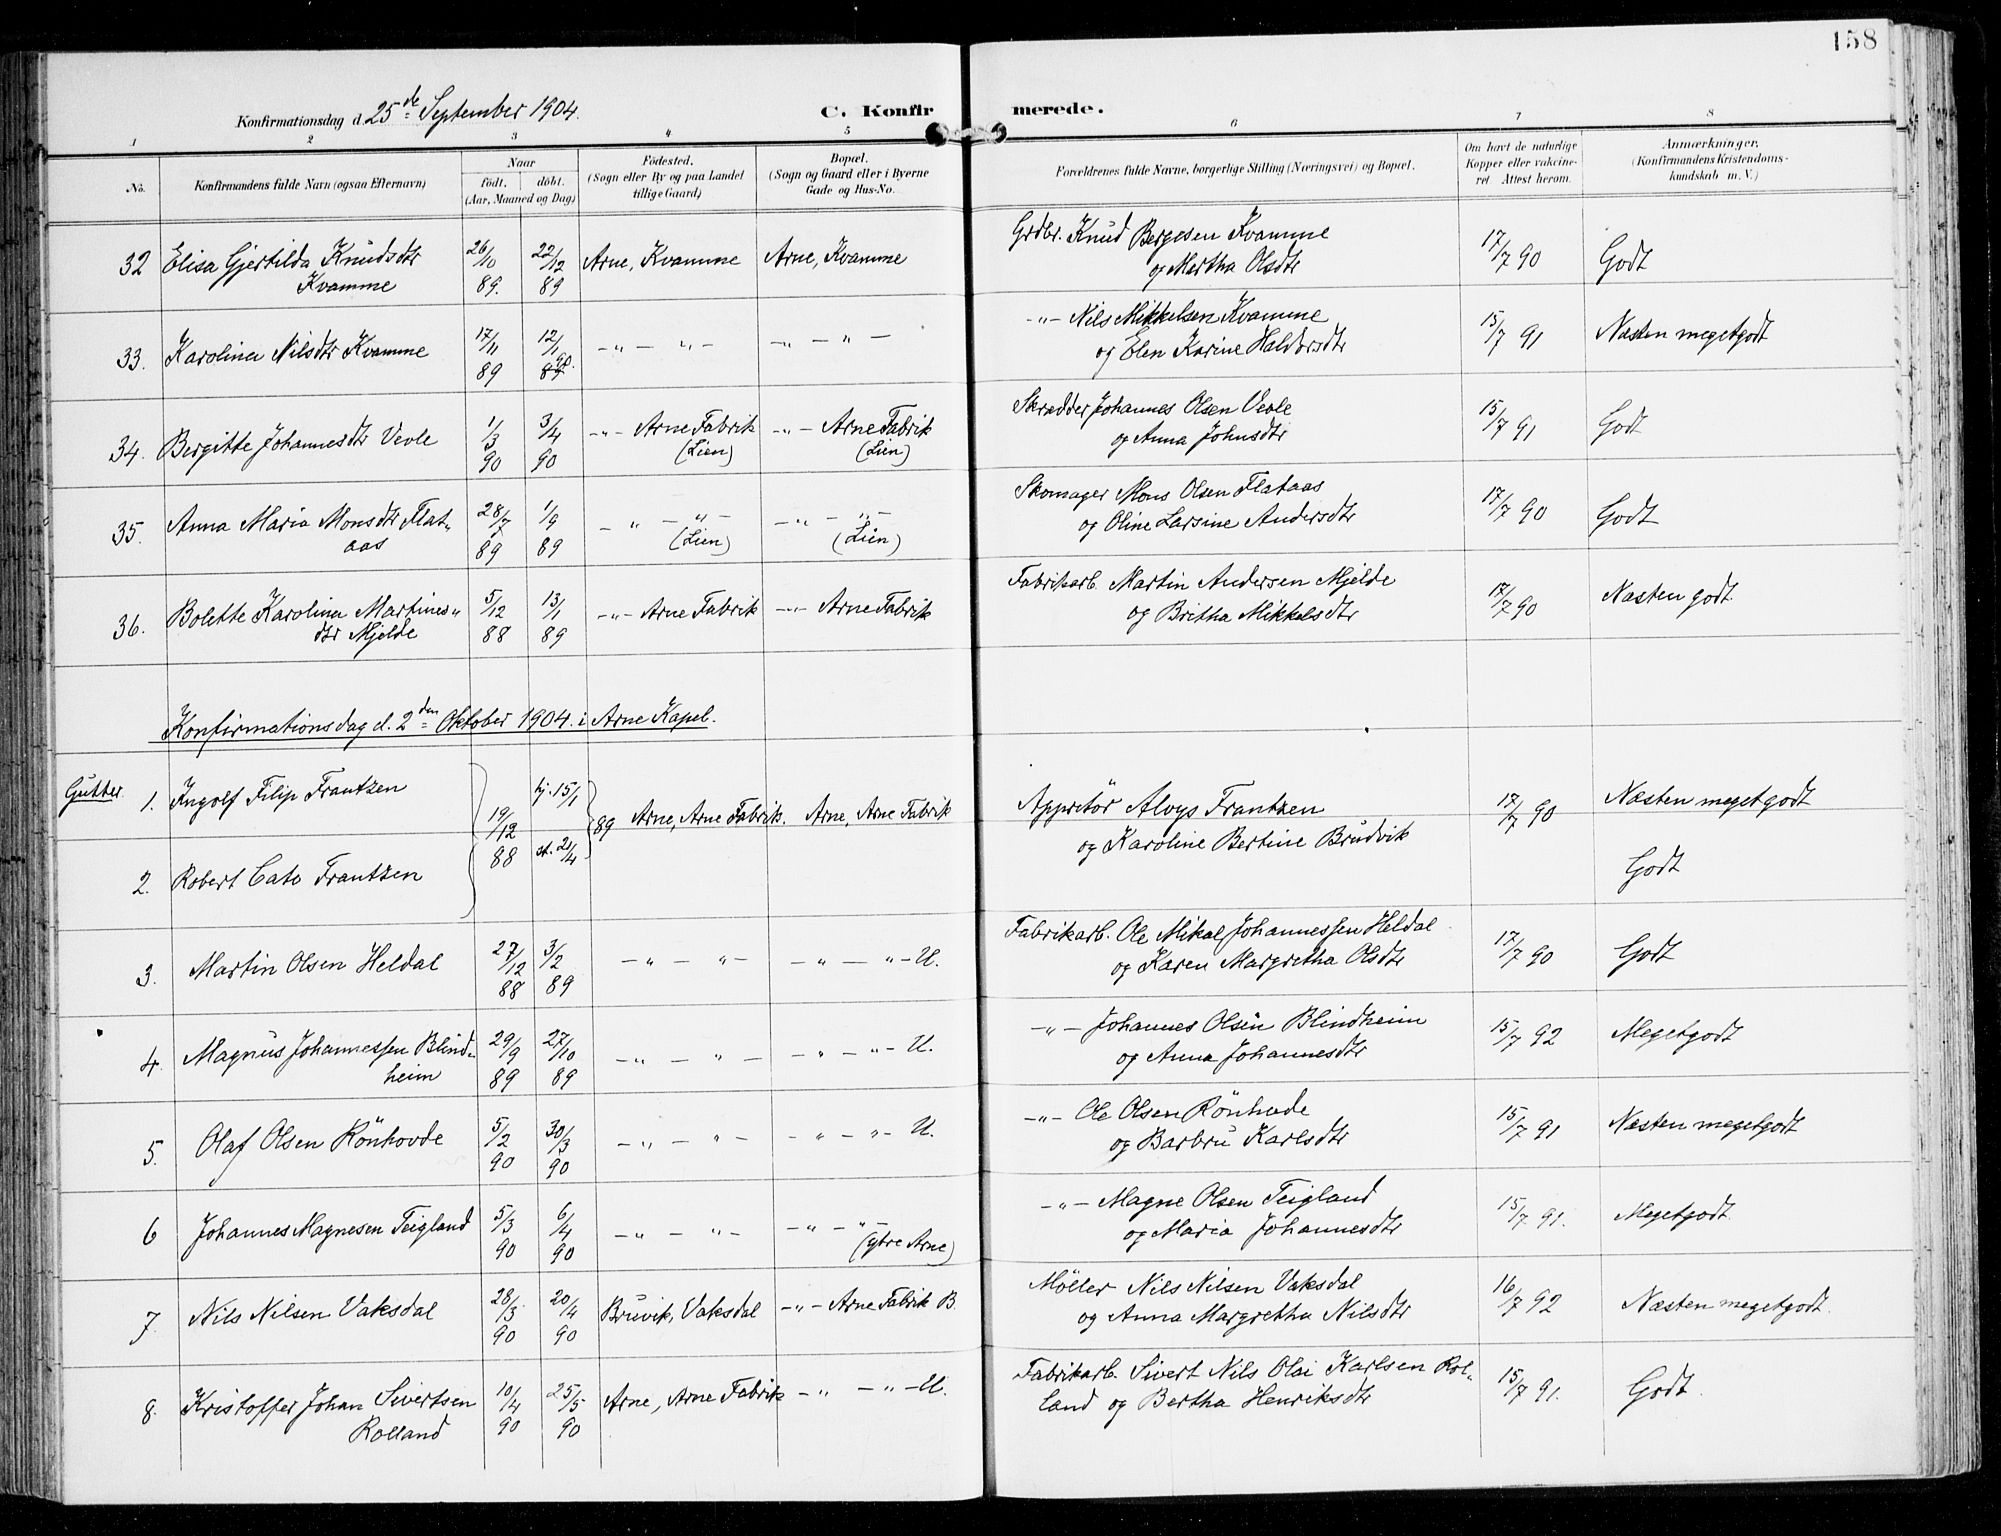 158
Konfirmationsdag d. 25de September 1904.
C. Konfirmerede.
1 2 3 4 5 6 7 8
No. | Konfirmandens fulde Navn (ogsaa Efternavn) | Naar födt, döbt. (Aar, Maaned og Dag) | Födested. (Sogn eller By og paa Landet tillige Gaard) | Bopæl. (Sogn og Gaard eller i Byerne Gade og Hus-No. | Forældrenes fulde Navne, borgerlige Stilling (Næringsvei) og Bopæl. | Om havt de naturlige Kopper eller vakcineret. Attest herom. | Anmærkninger, (Konfirmandens Kristendomskundskab m. V.)
32 Elisa Gjertilda Knudsdtr | 26/10 | 22/12 | Arne, Kvamme | Arne, Kvamme | Grdbr. Knud Bergesen Kvamme | 17/7 90 | Godt
Kvamme | 89. | 89 | og Martha Olsdtr
33. Karolina Nilsdtr Kvamme | 17/11 | 12/1 | –„– „– | –„– „– | –„– Nils Mikkelsen Kvamme | 15/7 91 | Næsten megetgodt
89 | 89 90. | og Elen Karine Haldorsdtr
34. Bergitte Johannesdtr Veole | 1/3 | 3/4 | –„– Arne Fabrik | –„– Arne Fabrik | Skrædder Johannes Olsen Veole | 15/7 91 | Godt
90 | 90 | (Lien) | (Lien) | og Anna Johnsdtr
35. Anna Maria Monsdtr Flat- | 28/7 | 1/9 | –„– „– | –„– „– | Skomager Mons Olsen Flataas | 17/7 90 | Godt
aas | 89 | 89 | (Lien) | (Lien) | og Oline Larsine Andersdtr
36. Bolette Karolina Martines- | 5/12 | 13/1 | –„– Arne Fabrik | –„– Arne Fabrik | Fabrikarb. Martin Andersen Mjelde | 17/7 90 | Næsten godt.
dtr Mjelde | 88 | 89 | og Britha Mikkelsdtr
Konfirmationsdag d. 2den Oktober 1904. i Arne Kapel.
Gutter 1. Ingolf Filip Frantzen | 19/12 88 | hj. 15/1 | 89 | Arne, Arne Fabrik. | Arne, Arne Fabrik | Appretör Aloys Frantzen | 17/7 90 | Næsten megetgodt
2. Robert Cato Frantzen | st. 21/4 | og Karoline Bertine Brudvik | Godt
3. Martin Olsen Heldal | 27/12 | 3/2 | –„– „– | –„– „– U. | Fabrikarb. Ole Mikal Johannessen Heldal | 17/7 90 | Godt
88 | 89 | og Karen Margretha Olsdtr
4. Magnus Johannessen Blind- | 29/9 | 27/10 | –„– „– | –„– „– U. | –„– Johannes Olsen Blindheim | 15/7 92 | Megetgodt
heim | 89 | 89 | og Anna Johannesdtr
5. Olaf Olsen Rönhovde | 5/2 | 30/3 | –„– „– | –„– „– U. | –„– Ole Olsen Rönhovde | 15/7 91 | Næsten megetgodt
90 | 90 | og Barbru Karlsdtr
6 Johannes Magnesen Teigland | 5/3 | 6/4 | –„– „– | –„– „– | –„– Magne Olsen Teigland | 15/7 91. | Megetgodt.
90 | 90 | (ytre Arne) | og Maria Johannesdtr
7. Nils Nilsen Vaksdal | 28/3 | 20/4 | Bruvik, Vaksdal | –„– Arne Fabrik B. | Möller Nils Nilsen Vaksdal | 16/7 92 | Næsten megetgodt.
90 | 90 | og Anna Margretha Nilsdtr
8. Kristoffer Johan Sivertsen | 10/4 | 25/5 | Arne, Arne Fabrik | –„– „– U. | Fabrikarb. Sivert Nils Olai Karlsen Rol- | 15/7 91. | Godt.
Rolland | 90 | 90 | land og Bertha Henriksdtr